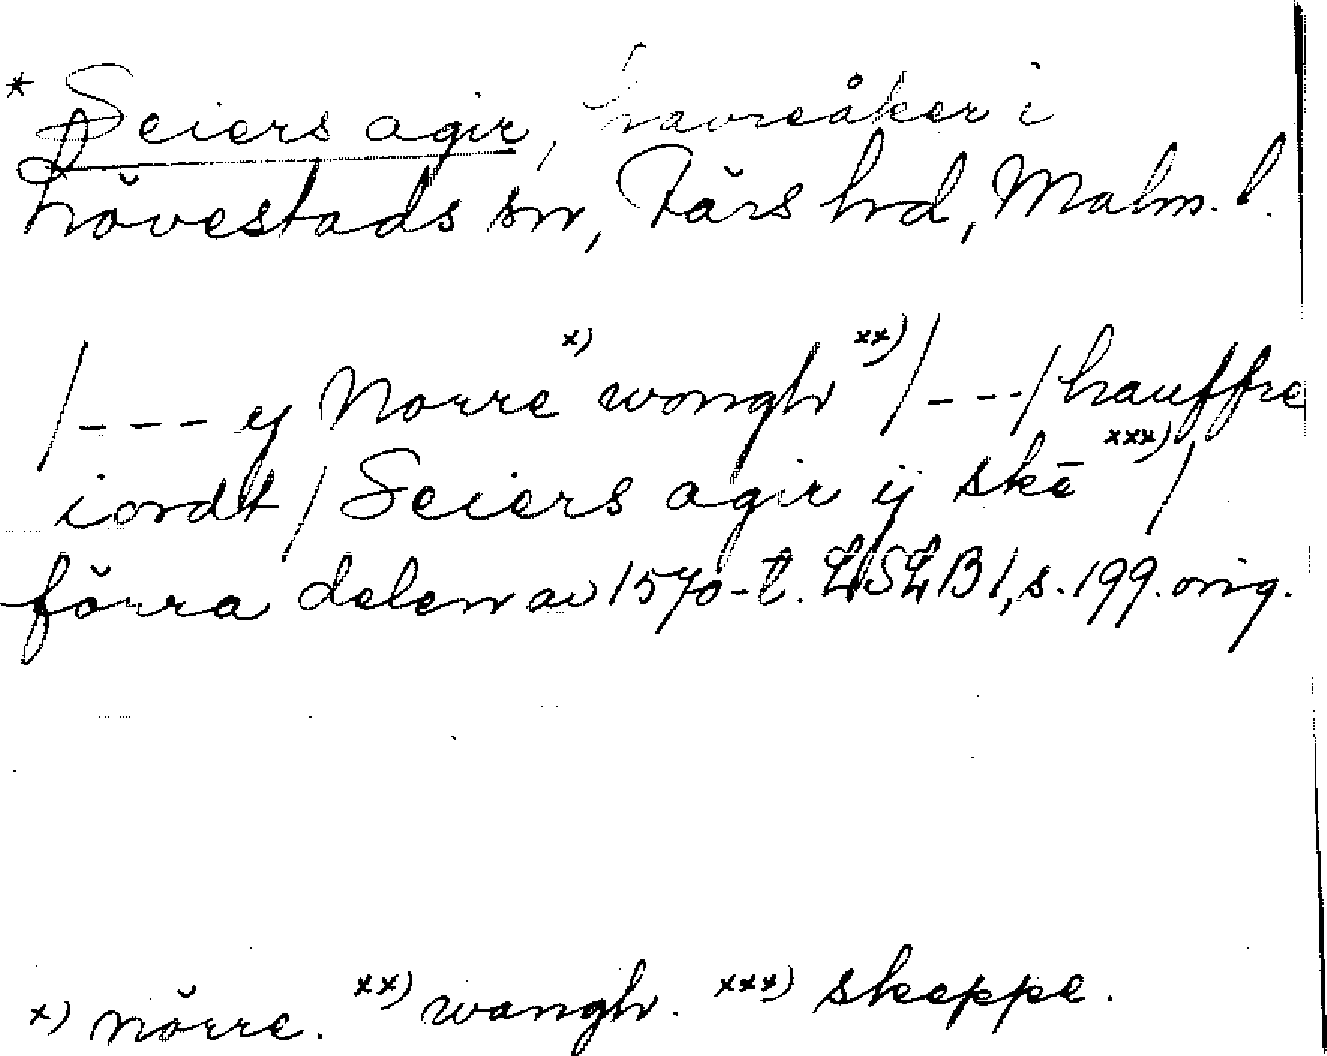 * Seiers agir, havreåker i
Lövestads sn, Färs hd, Malm. l.
/--- ij Norre x) wongh xx) /---/ hauffre
iordt / Seiers agir ij skē xxx) /
förra delen av 1570-t. LSLB 1, s. 199. orig.
x) nörre. xx) wangh. xxx) skeppe.